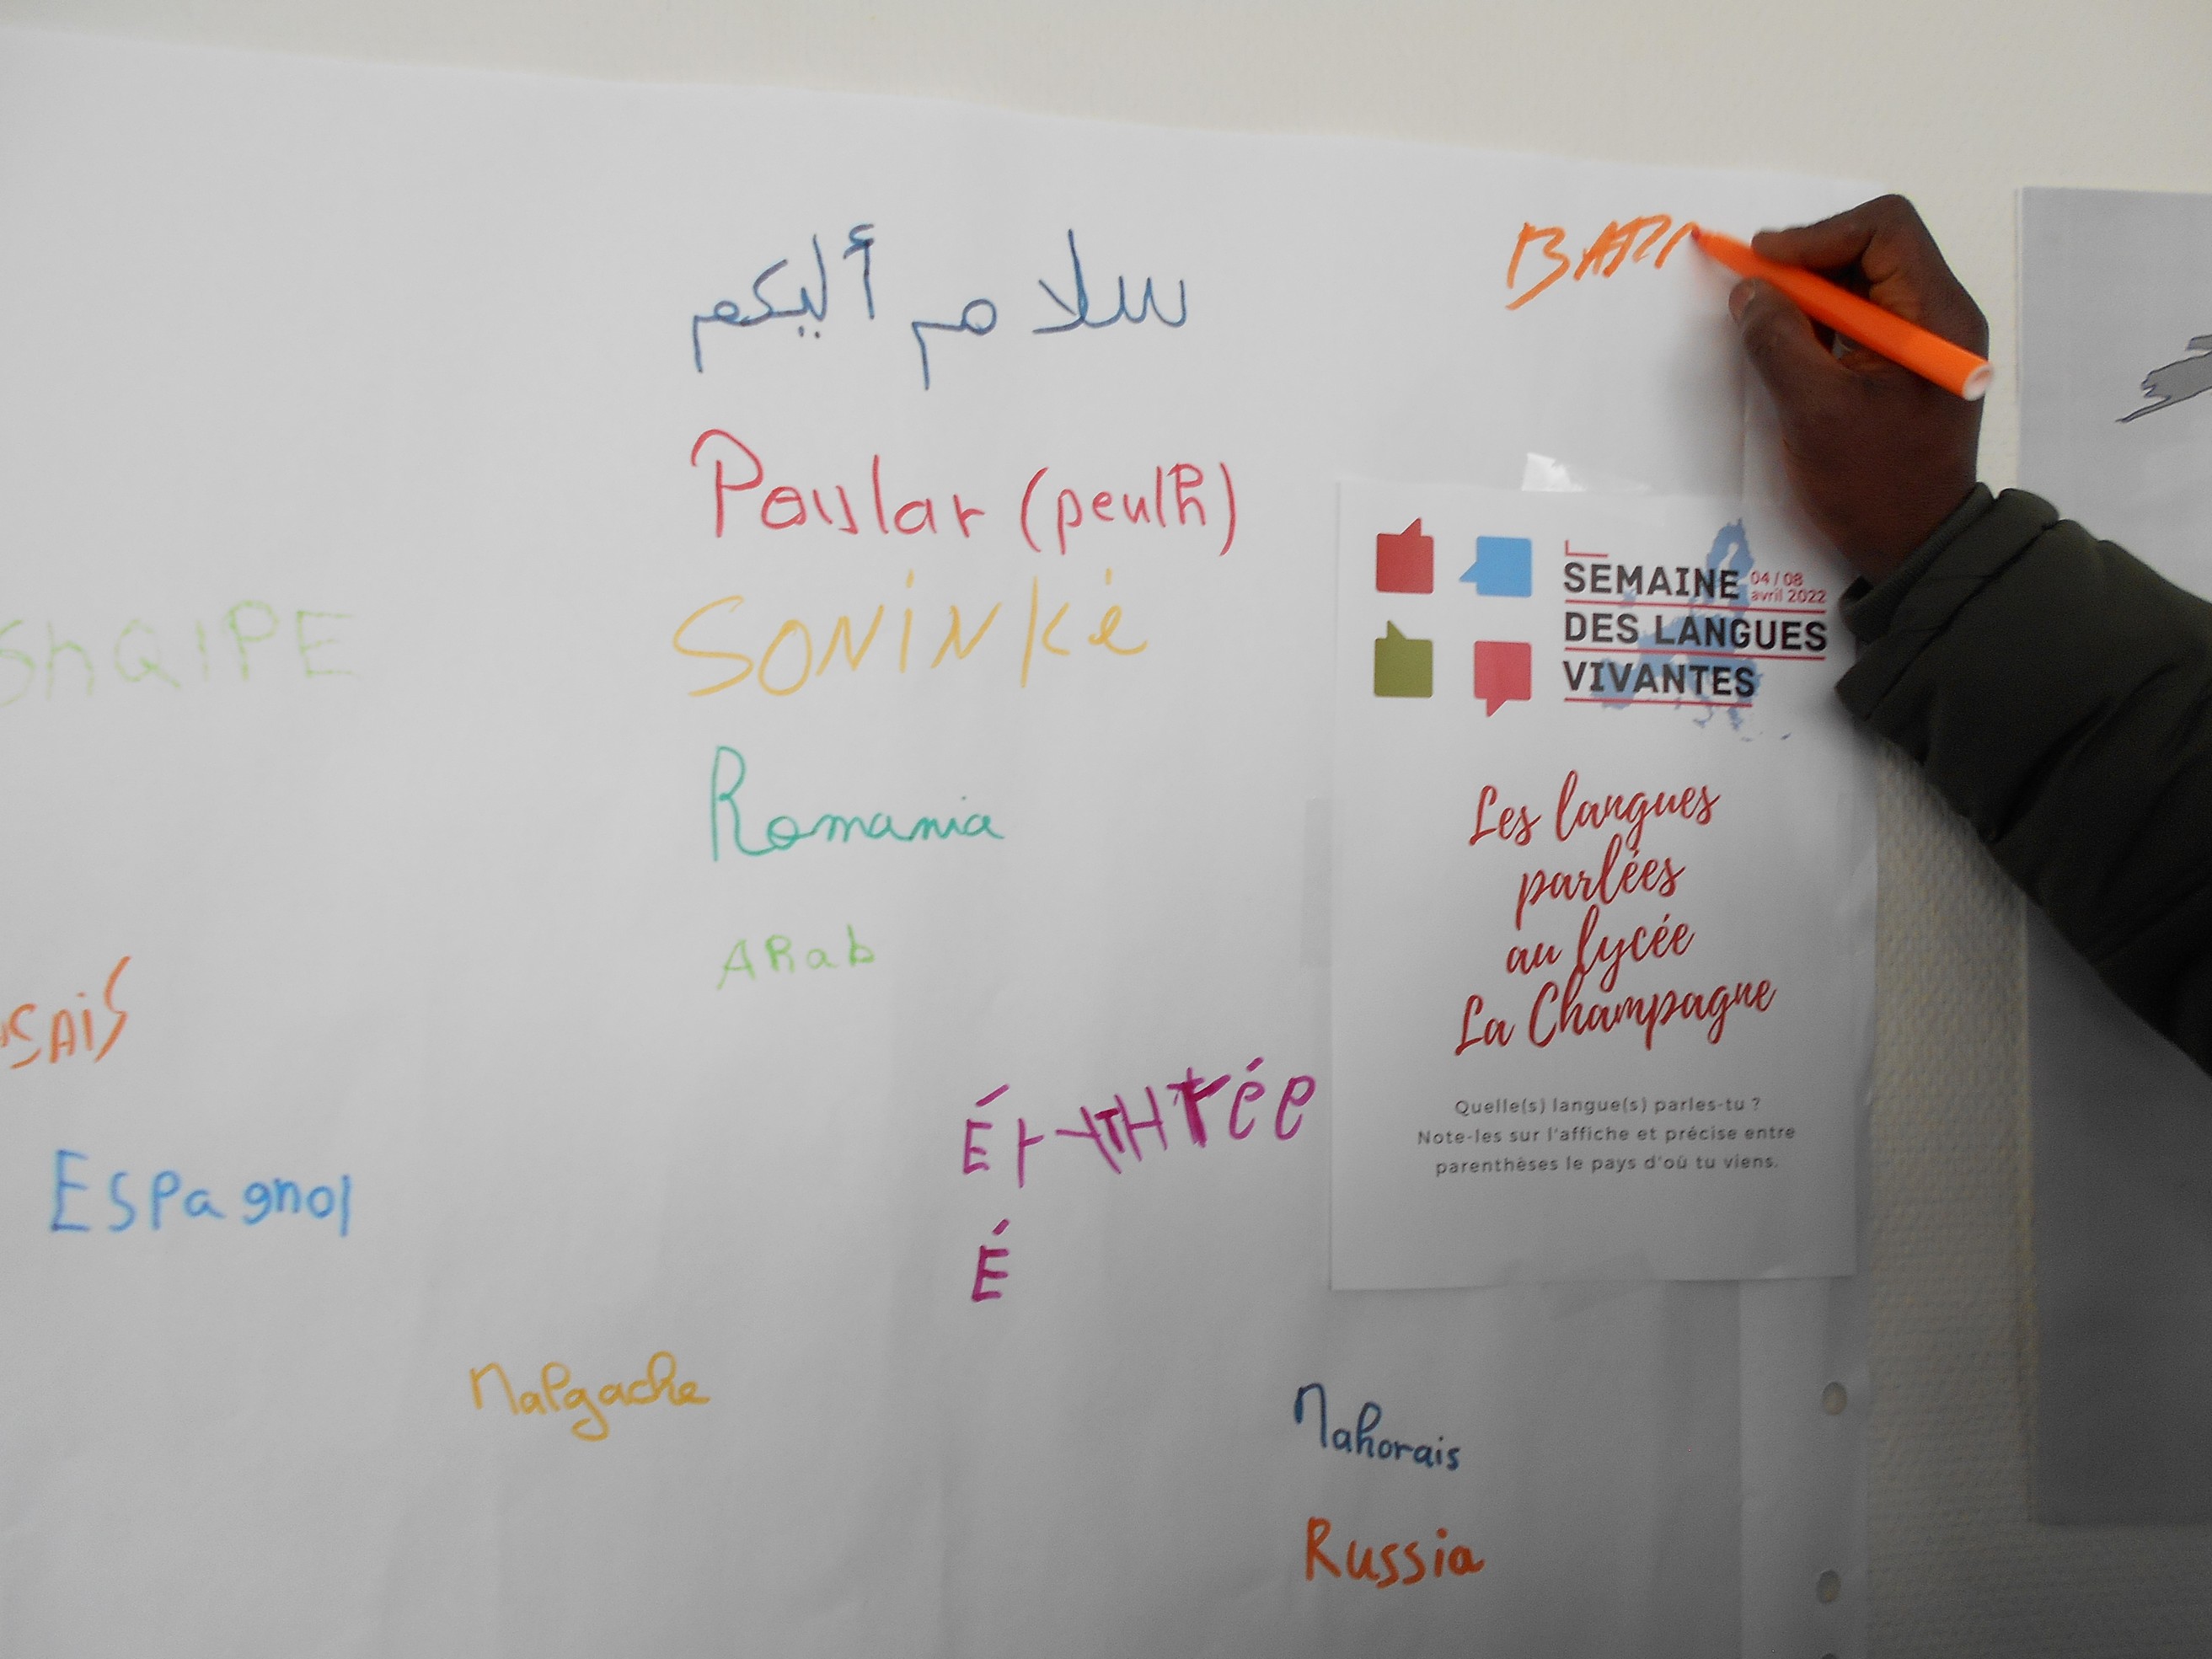 سلام أليكم
Poular (peulh)
SONiNKé
SHQIPE
Romania
ARab
Espagnol
É
Malgache
Mahorais
Russia
SEMAINE 04 / 08
avril 2022
DES LANGUES
VIVANTES
Les langues
parlées
au lycée
La Champagne
Quelle(s) langue(s) parles-tu ?
Note-les sur l'affiche et précise entre
parenthèses le pays d'où tu viens.